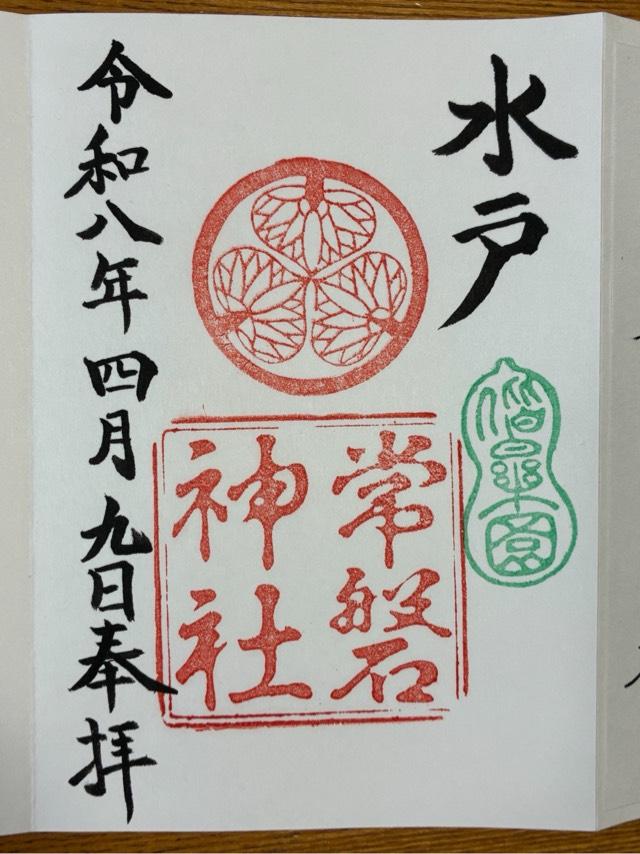 水戸
偕樂園
常磐
神社
令和八年四月九日奉拝